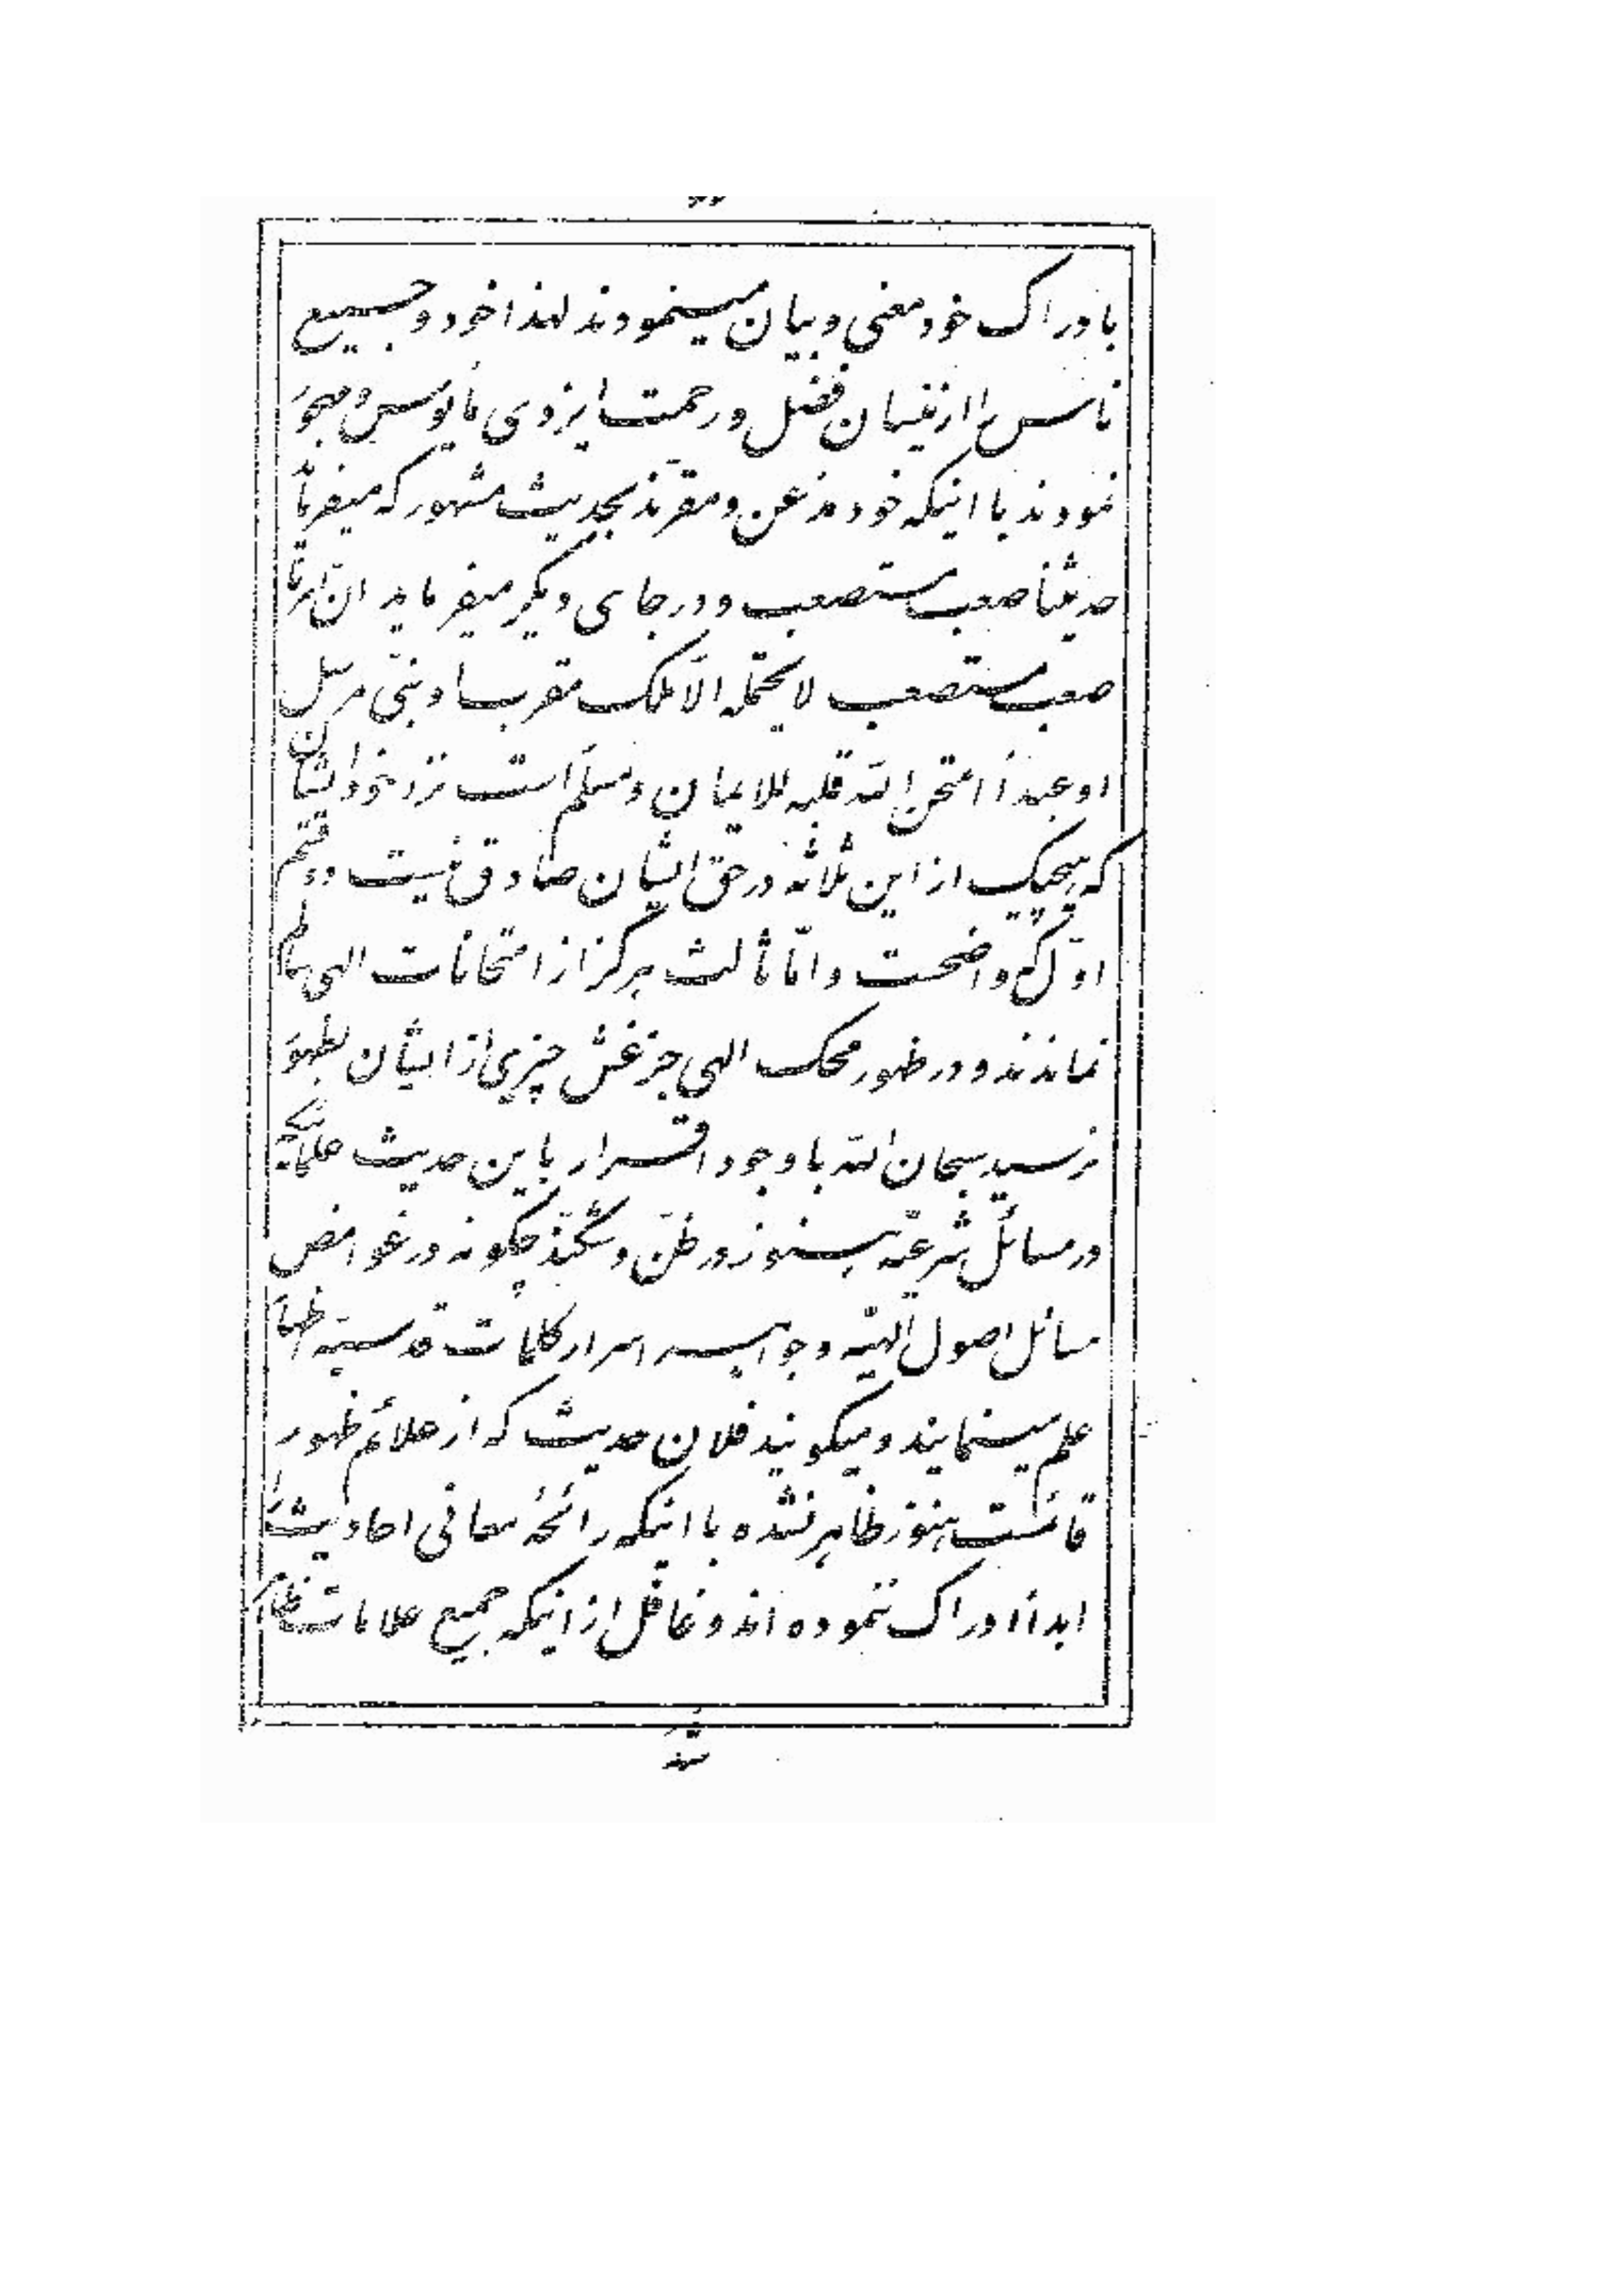 بادراک خود معنی و بیان مینمودند لهذا خود و جمیع
ناس را از نیسان فضل و رحمت ایزدی مأیوس و مهجور
نمودند با اینکه خود مذعن و مقرّند بحدیث مشهور که میفرماید
حدیثنا صعب مستصعب و در جای دیگر میفرماید انّ امرنا
صعب مستصعب لا یحتمله الّا ملک مقرب او نبیّ مرسل
او عبد أامتحن اللّه قلبه للایمان و مسلّم است نزد خود ایشان
که هیچیک از این ثلاثه در حقّ ایشان صادق نیست دو قسم
اوّل که واضحست و امّا ثالث هرگز از امتحانات الهی سالم
نماندند و در ظهور محک الهی جز غش چیزی از ایشان بظهور
نرسید سبحان اللّه با وجود اقرار باین حدیث علمائیکه
در مسائل شرعیّه هنوز در ظنّ و شکّند چگونه در غوامض
مسائل اصول الهیّه و جواهر اسرار کلمات قدسیّه اظهار
علم مینمایند و میگویند فلان حدیث که از علائم ظهور
قائمست هنوز ظاهر نشده با اینکه رائحهٔ معانی احادیث را
ابداً ادراک ننموده‌اند و غافل از اینکه جمیع علامات ظاهر
شد